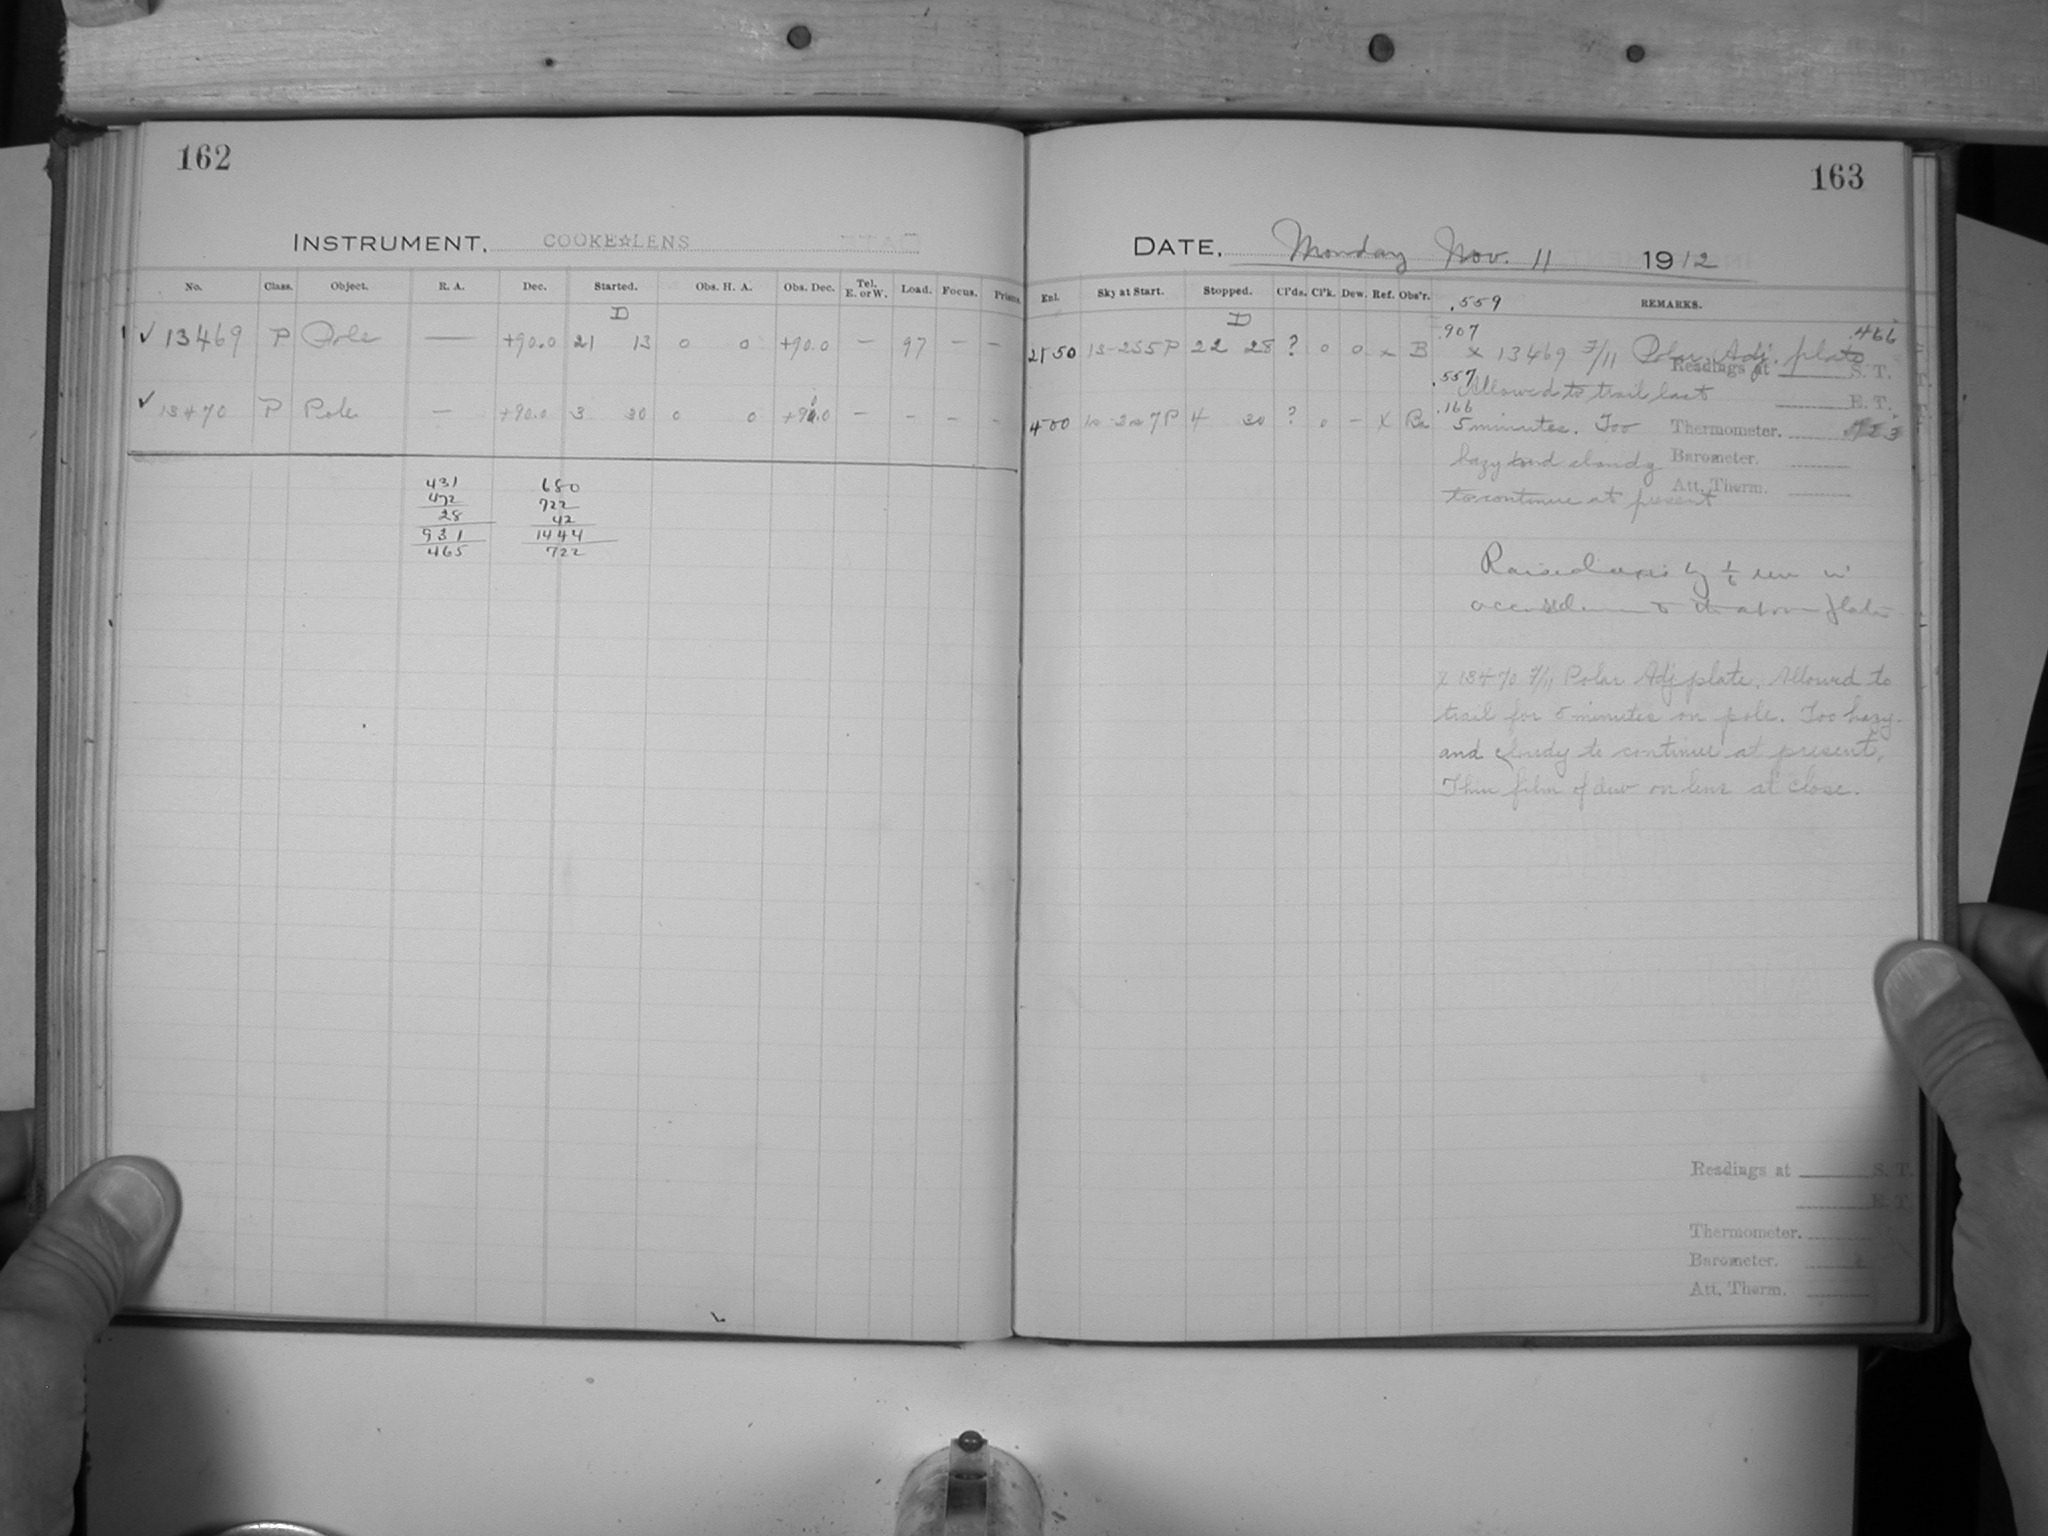 162
INSTRUMENT. COOKE☆LENS
No. Class. Object. R. A. Dec. Started. Obs. H. A. Obs. Dec. Tel. E. or W. Load. Focus. Prisms.
D
✓ 13469 P Pole — +90.0 21 13 0 0 +90.0 — 97 — —
✓ 13470 P Pole — +90.0 3 30 0 0 +90.0 — - - -
431 680
472 722
28 42
931 1444
465 722
163
DATE, Monday Nov. 11 1912
Exl. Sky at Start. Stopped. Cl'ds. Cl'k. Dew. Ref. Obs'r. .559 REMARKS.
D
2150 13-255P 22 28 ? 0 0 x B
400 4 30 ? 0 - X
.907 .466
x 13469 7/11 Polar Adj. plate
Readings at S. T.
.557 Allowed to trail last
E. T.
.166
5 minutes. Too
Thermometer.
hazy and cloudy
Barometer.
to continue at present
Att. Therm.
Raised axis by 1/6 rev in
to the above plate
x 13470 7/11 Polar Adj plate. Allowed to
trail for 5 minutes on pole. Too hazy
and cloudy to continue at present.
Thin film of dew on lens at close.
Readings at S. T.
E. T.
Thermometer.
Barometer.
Att. Therm.